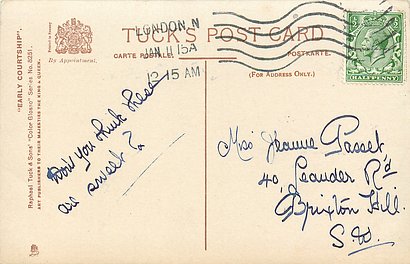 TUCK'S POST CARD
CARTE POSTALE
POSTKARTE
(FOR ADDRESS ONLY.)
By Appointment.
"EARLY COURTSHIP".
Raphael Tuck & Sons' "Color Glosso" Series No. 8251.
ART PUBLISHERS TO THEIR MAJESTIES THE KING & QUEEN.
LONDON, N
JAN 11 15A
12 15 AM
HALFPENNY
Don't you think these
are sweet?
Miss Jeanne Passet
40, Leander Rd
Brixton Hill.
S.W.